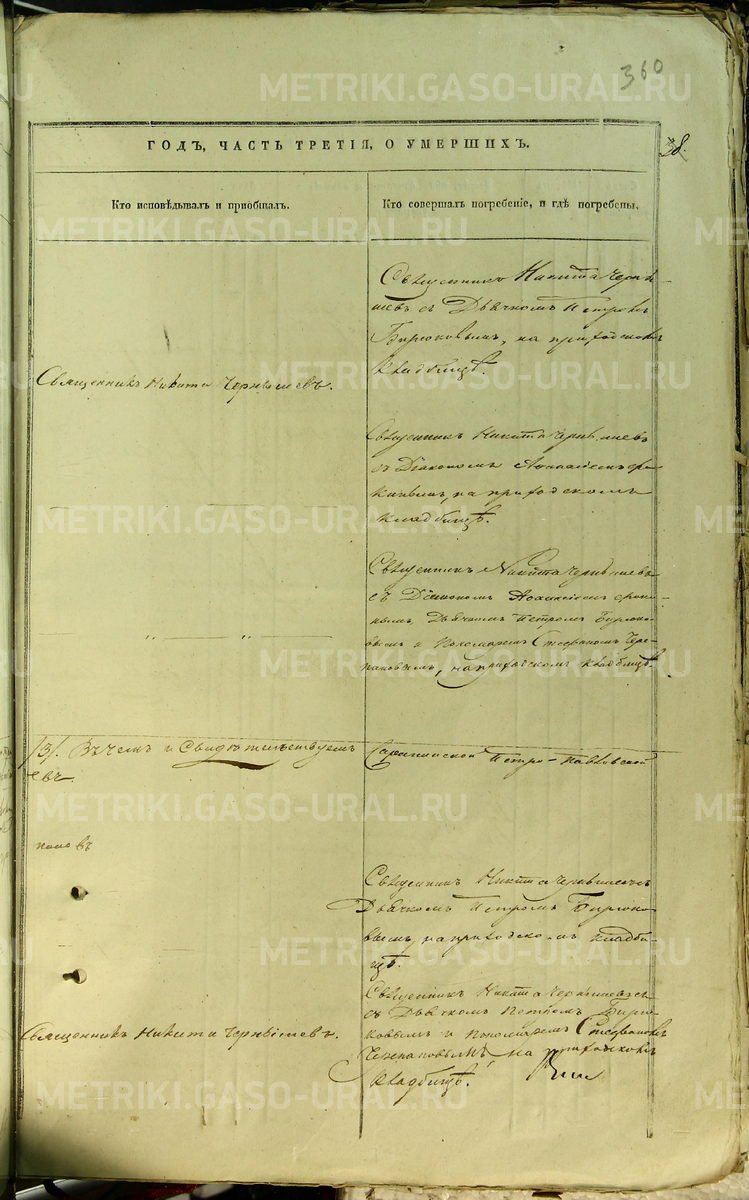 360
28.
ГОДЪ, ЧАСТЬ ТРЕТІЯ, О УМЕРШИХЪ.
Кто исповѣдывалъ и пріобщалъ.
Кто совершалъ погребеніе, и гдѣ погребены.
Священникъ Никита Чернышевъ.
Священникъ Никита Черны-
шевъ съ Дьячкомъ Петромъ
Бирюковымъ, на приходскомъ
кладбищѣ.
Священникъ Никита Чернышевъ
съ Діакономъ
на приходскомъ
кладбищѣ.
„ „
Священникъ Никита Чернышевъ
съ Діакономъ
Дьячкомъ Петромъ Бирюко-
вымъ и Пономаремъ Стефаномъ Чере-
пановымъ, на приходскомъ кладбищѣ.
/3/. Въ чемъ и Свидѣтельствуемъ
Петро-Павловской
евъ
повъ
Священникъ Никита Чернышевъ съ
Дьячкомъ Петромъ Бирюко-
вымъ, на приходскомъ кладби-
щѣ.
Священникъ Никита Чернышевъ.
Священникъ Никита Чернышевъ
съ Дьячкомъ Петромъ Бирю-
ковымъ и Пономаремъ Стефаномъ
Черепановымъ, на приходскомъ
кладбищѣ.
METRIKI.GASO-URAL.RU